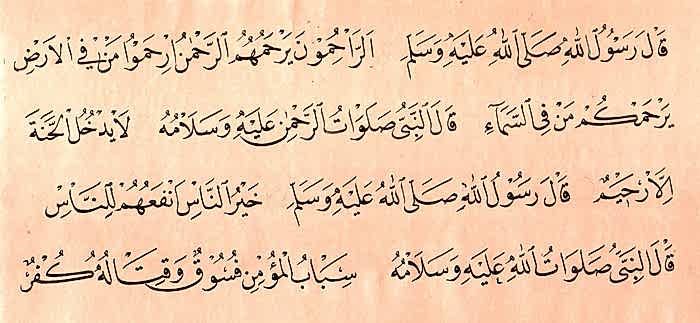 قَالَ رَسُولُ اللهِ صَلَّى اللهُ عَلَيْهِ وَسَلَّمَ الرَّاحِمُونَ يَرْحَمُهُمُ الرَّحْمٰنُ اِرْحَمُوا مَنْ فِي الْاَرْضِ
يَرْحَمْكُمْ مَنْ فِي السَّمَاءِ قَالَ النَّبِيُّ صَلَوَاتُ الرَّحْمٰنِ عَلَيْهِ وَسَلَامُهُ لَا يَدْخُلُ الْجَنَّةَ
اِلَّا رَحِيمٌ قَالَ رَسُولُ اللهِ صَلَّى اللهُ عَلَيْهِ وَسَلَّمَ خَيْرُ النَّاسِ اَنْفَعُهُمْ لِلنَّاسِ
قَالَ النَّبِيُّ صَلَوَاتُ اللهِ عَلَيْهِ وَسَلَامُهُ سِبَابُ الْمُؤْمِنِ فُسُوقٌ وَقِتَالُهُ كُفْرٌ